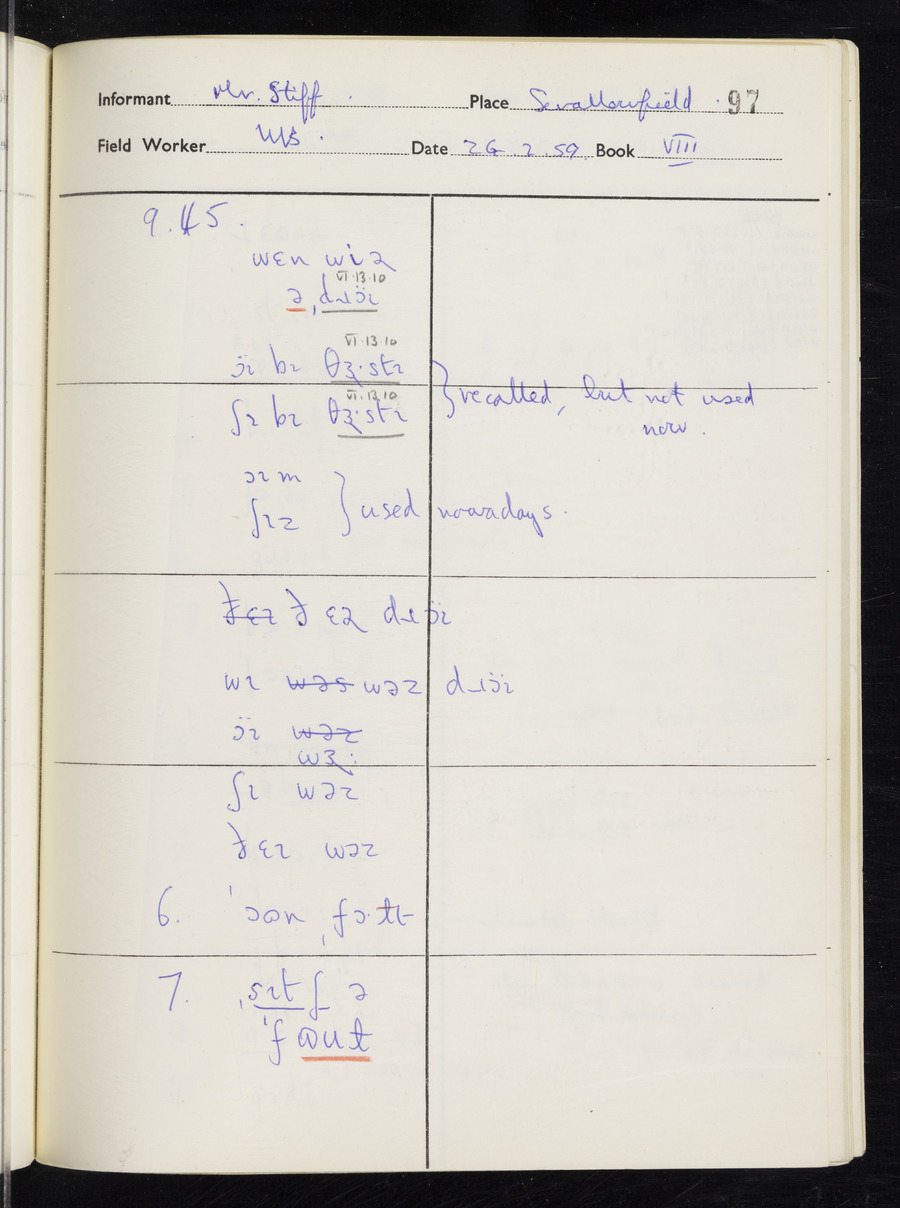 Informant Mr. Stiff . Place Swallowfield . 97
Field Worker WB . Date 26.2.59. Book VIII
9.45.
wɛn wi ə
VI.13.10
ə ˌdɹɔ̈ɪ
VI.13.10
jɪ bɪ θɜ·stɪ
VI.13.10
ʃɪ bɪ θɜ·stɪ
} recalled, but not used
now.
ɪm
ʃɪz } used nowadays.
ðɛɪ ð ɛə dɹɔ̈ɪ
wɪ wəs wəz dɹɔ̈ɪ
jɪ wəz
wɜ:
ʃɪ wəz
ðɛɪ wəz
6. fɔ·ɫt
7. ˌsɪtʃ ə
ˈfɒuɫt